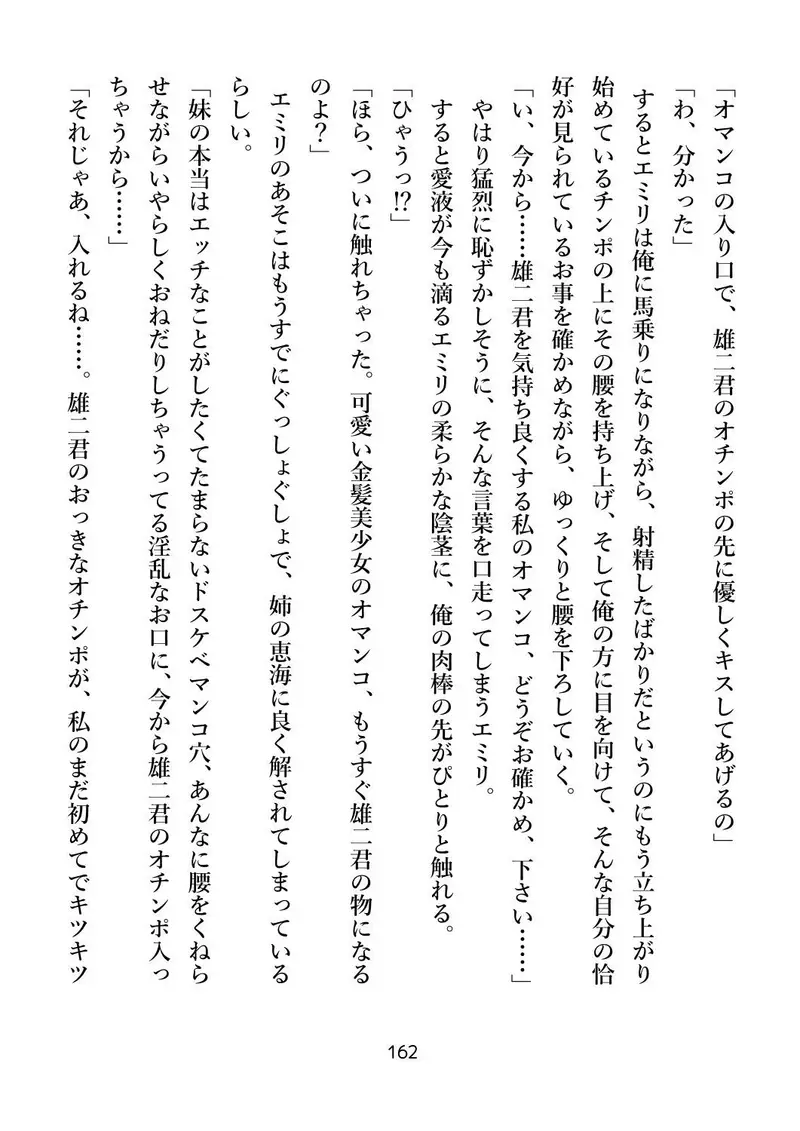 「オマンコの入り口で、雄二君のオチンポの先に優しくキスしてあげるの」
「わ、分かった」
するとエミリは俺に馬乗りになりながら、射精したばかりだというのにもう立ち上がり
始めているチンポの上にその腰を持ち上げ、そして俺の方に目を向けて、そんな自分の恰
好が見られているお事を確かめながら、ゆっくりと腰を下ろしていく。
「い、今から……雄二君を気持ち良くする私のオマンコ、どうぞお確かめ、下さい……」
やはり猛烈に恥ずかしそうに、そんな言葉を口走ってしまうエミリ。
すると愛液が今も滴るエミリの柔らかな陰茎に、俺の肉棒の先がぴとりと触れる。
「ひゃうっ!?」
「ほら、ついに触れちゃった。可愛い金髪美少女のオマンコ、もうすぐ雄二君の物になる
のよ?」
エミリのあそこはもうすでにぐっしょぐしょで、姉の恵海に良く解されてしまっている
らしい。
「妹の本当はエッチなことがしたくてたまらないドスケベマンコ穴、あんなに腰をくねら
せながらいやらしくおねだりしちゃうってる淫乱なお口に、今から雄二君のオチンポ入っ
ちゃうから……」
「それじゃあ、入れるね……。雄二君のおっきなオチンポが、私のまだ初めてでキツキツ
162